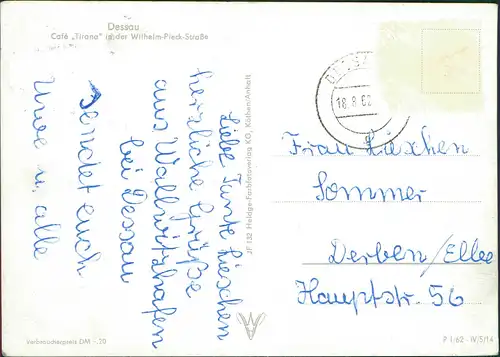 Dessau
Café „Tirana“ in der Wilhelm-Pieck-Straße
Liebe Tante Lieschen
herzliche Grüße
aus Wallwitzhafen
bei Dessau
sendet euch
Uwe u. alle
JF 132 Heldge-Fachfotoverlag KG, Köthen/Anhalt
DESSA
18.8.62
Frau Lieschen
Sommer
Derben/Elbe
Hauptstr. 56
Verbraucherpreis DM -.20
P 1/62 - IV/5/14